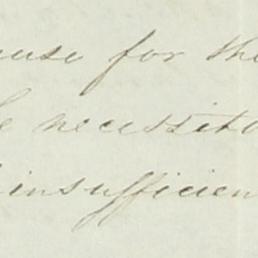 ause for the
necessita
insufficien